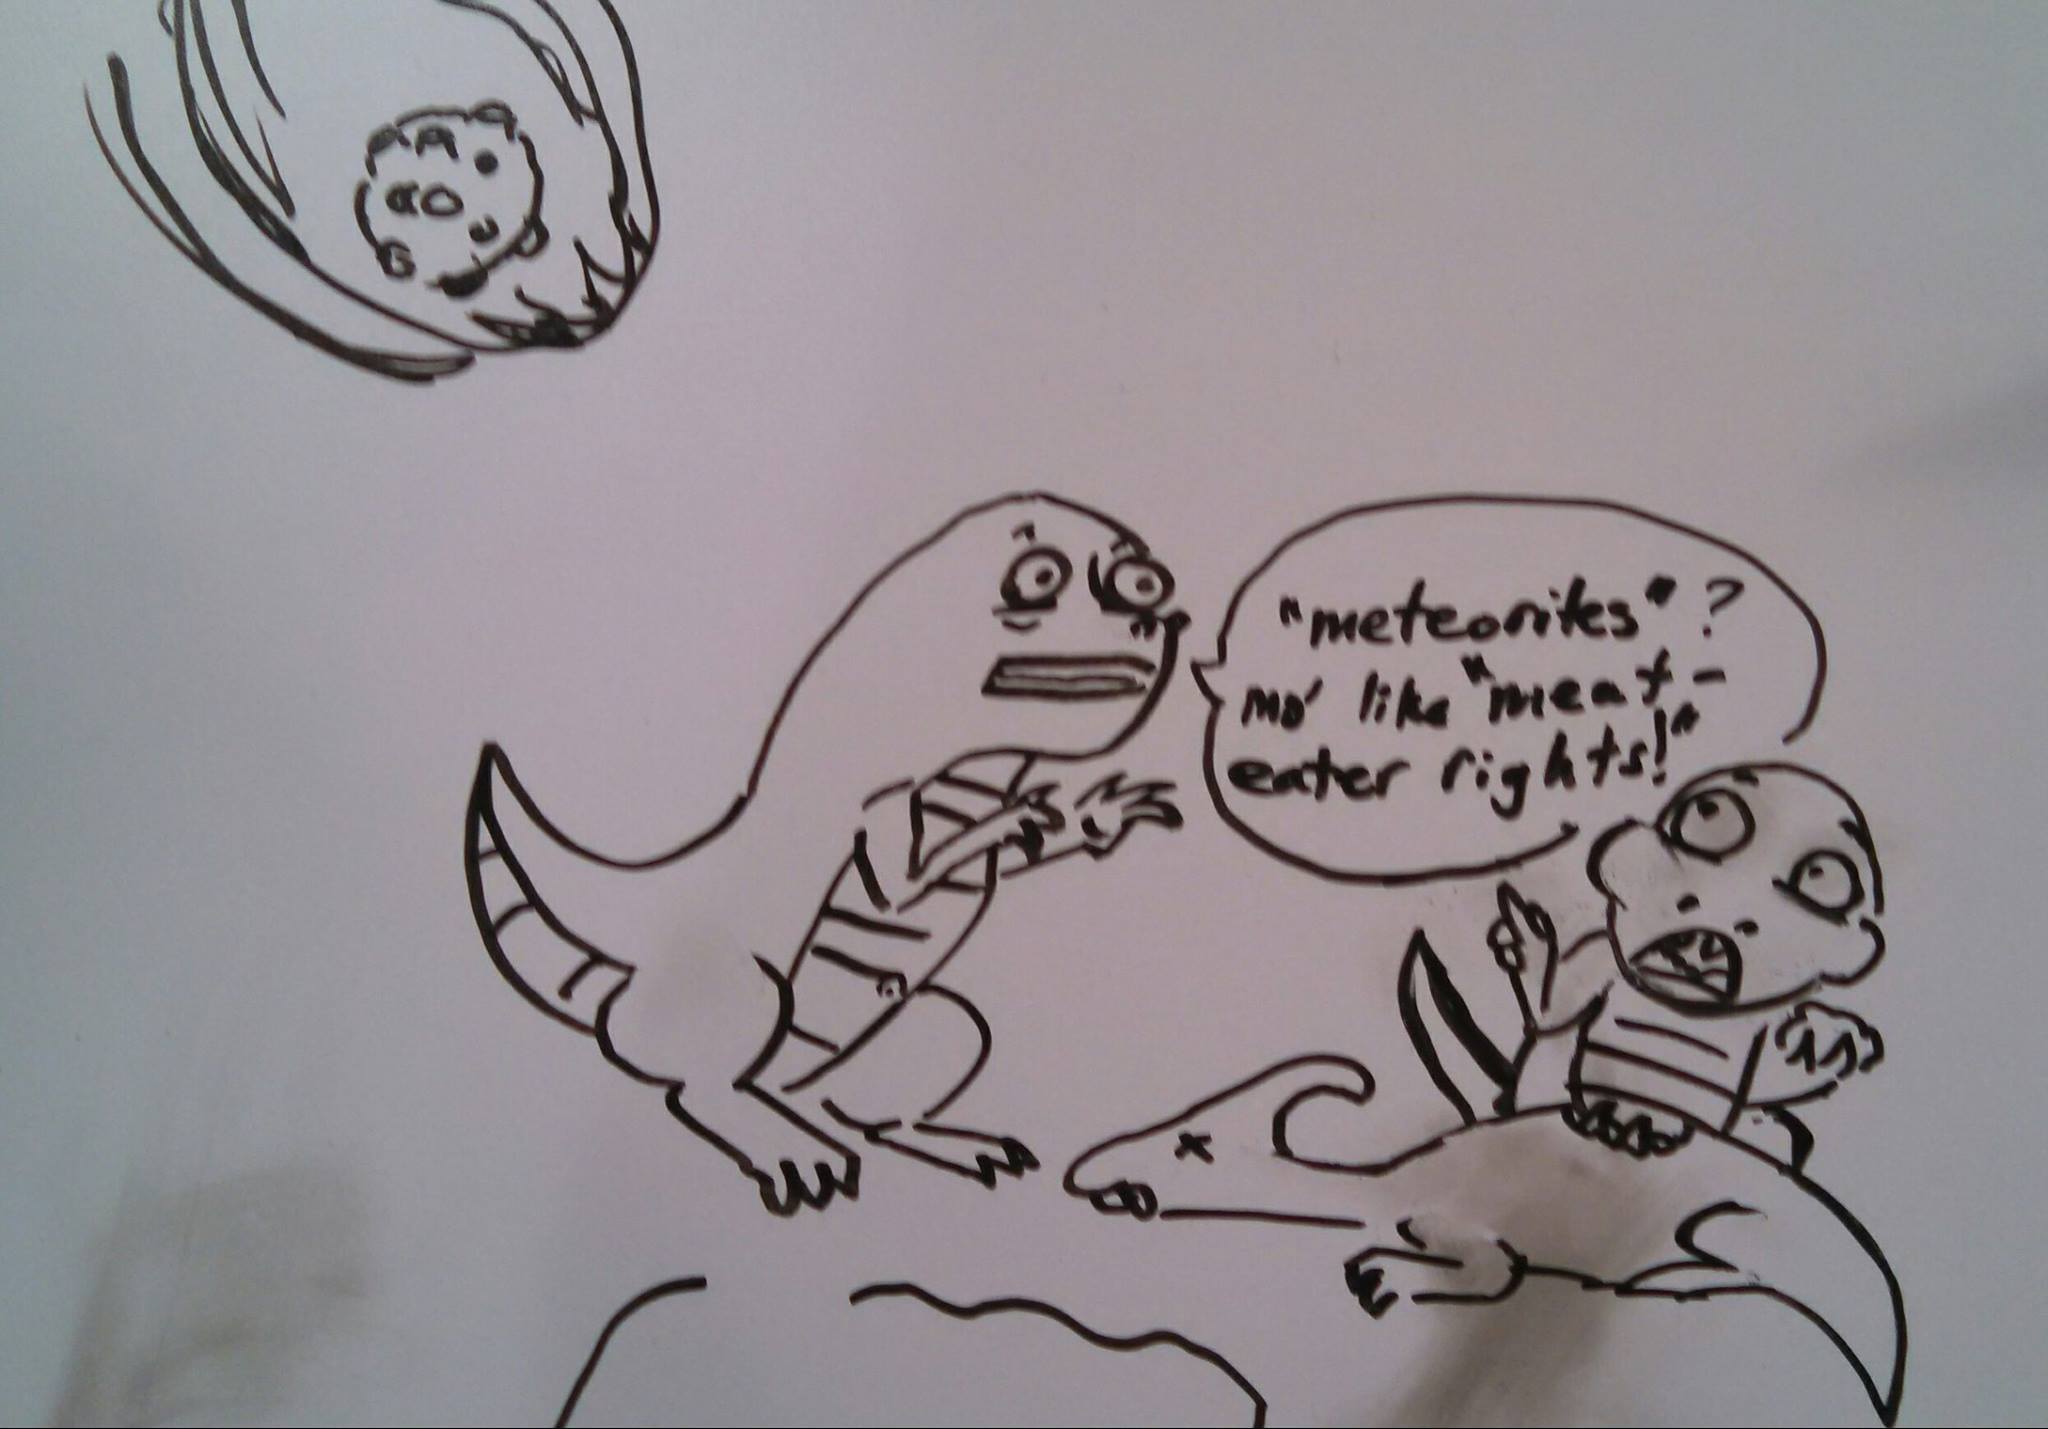 "meteorites"?
mo' like "meat-
eater rights!"